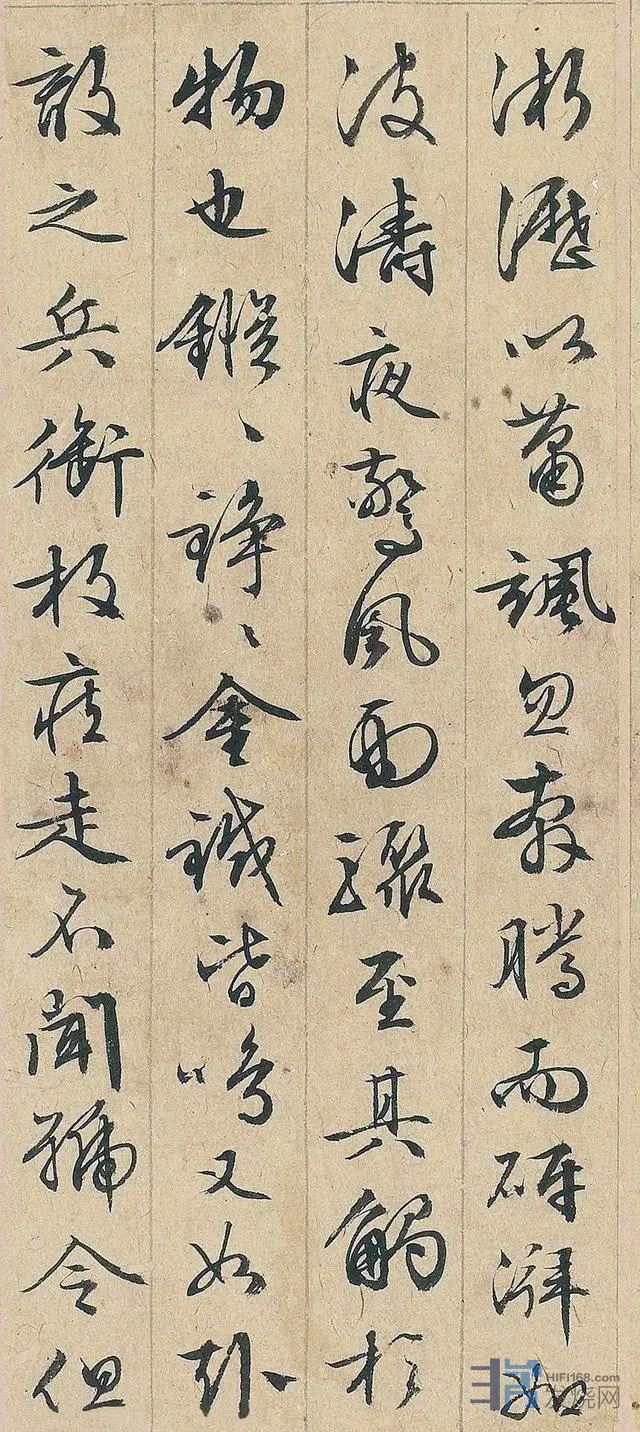 淅瀝以蕭颯忽奔騰而砰湃如
波濤夜驚風雨驟至其觸於
物也鏦〻錚〻金鐵皆鳴又如赴
敵之兵銜枚疾走不聞號令但
HIFI168.com
发烧网